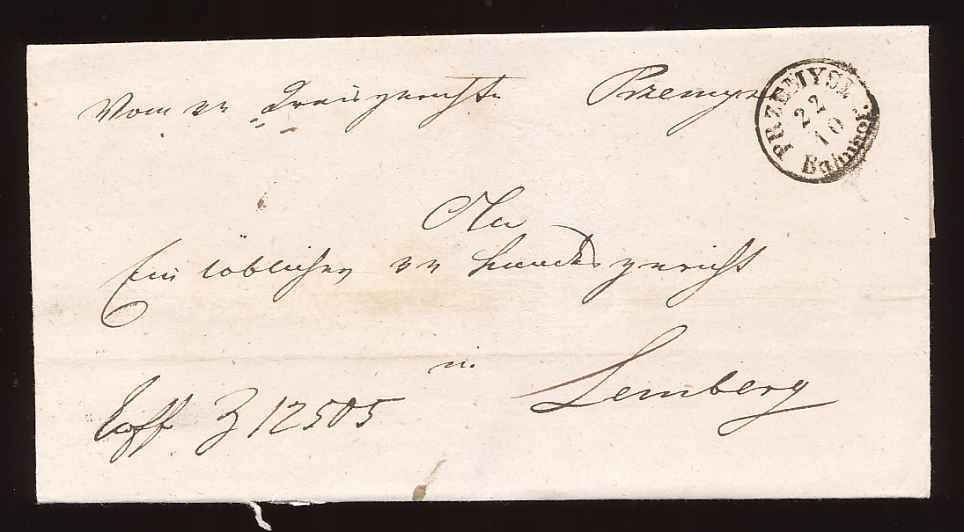 Vom k k Kreisgerichte Przemysl
PRZEMYSL
22
10
Bahnhof.
An
Ein löbliches k k Landesgericht
in
Lemberg
Z 12505